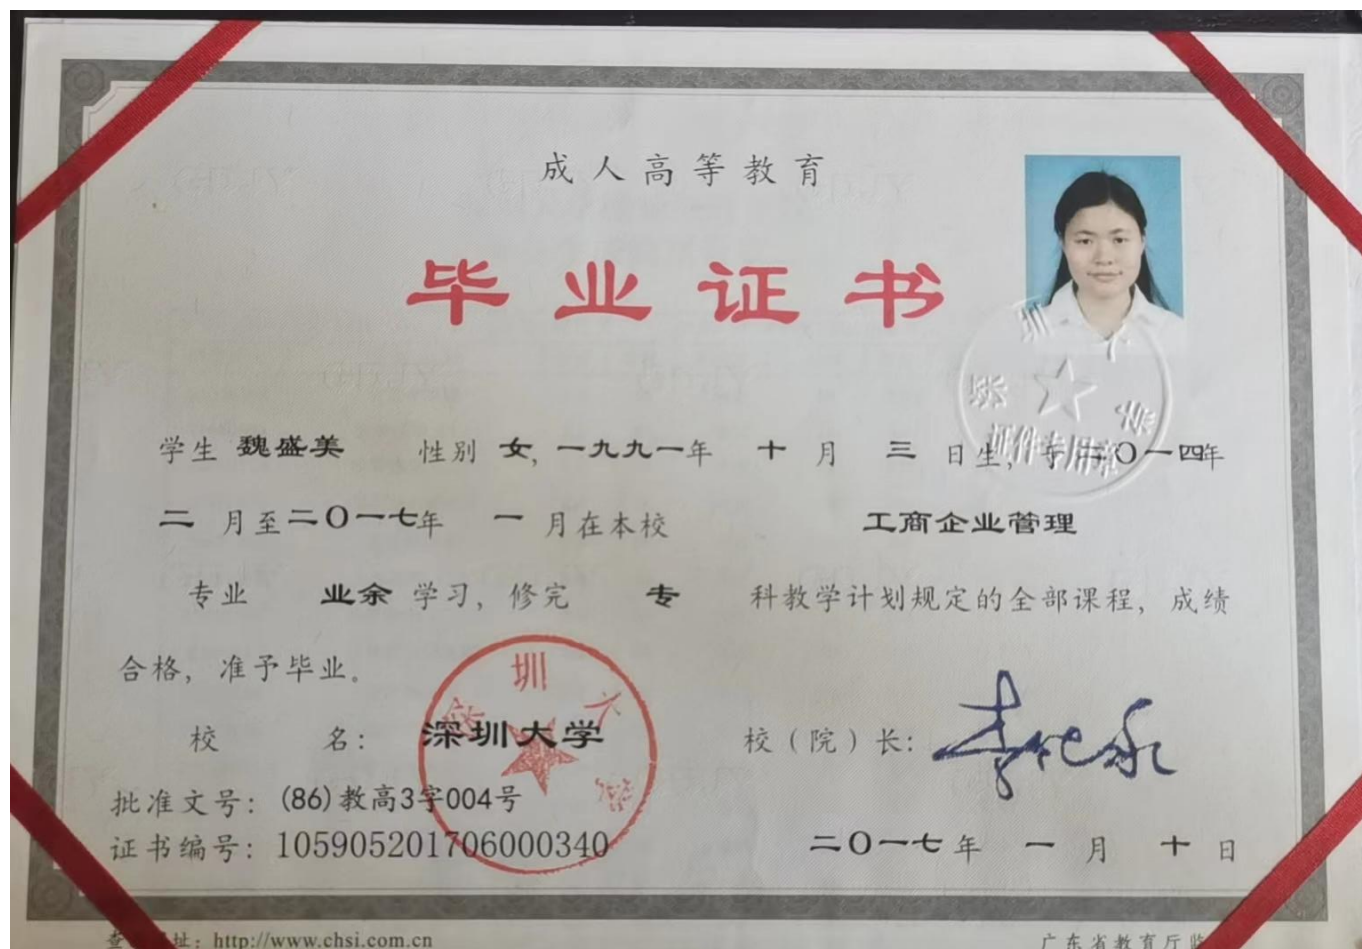 成人高等教育
毕业证书
学生 魏盛美 性别 女, 一九九一年 十 月 三 日生, 于二〇一四年
二 月至二〇一七年 一 月在本校 工商企业管理
专业 业余 学习, 修完 专 科教学计划规定的全部课程, 成绩
合格, 准予毕业。
校 名: 深圳大学 校(院)长:
批准文号: (86)教高3字004号
证书编号: 105905201706000340
二〇一七年 一 月 十 日
深圳大学
证件专用章
深圳大学
址: http://www.chsi.com.cn
广东省教育厅监